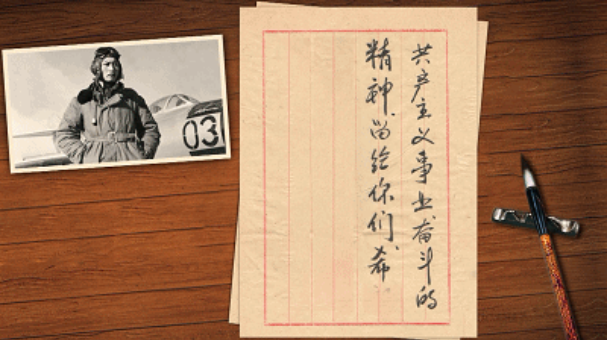 共产主义事业奋斗的
精神、留给你们、希
03